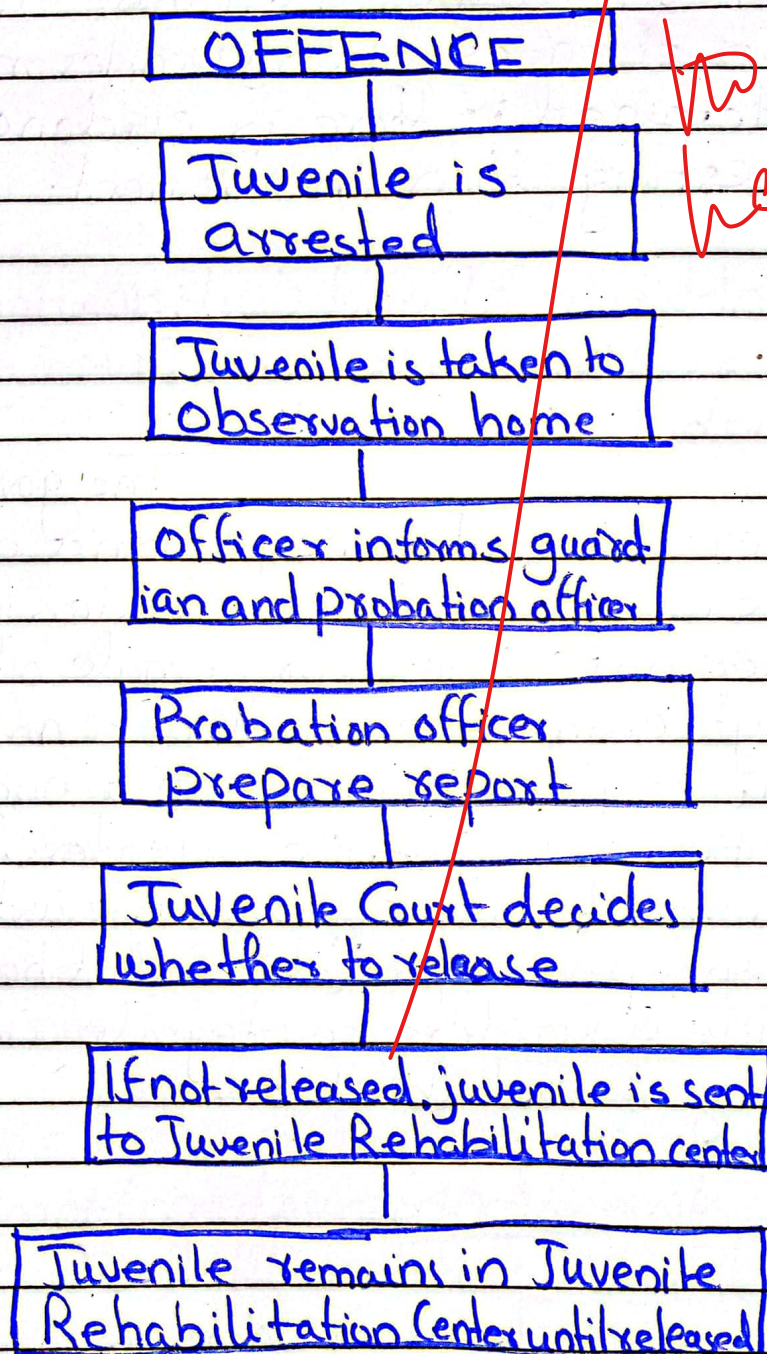 OFFENCE
Juvenile is
arrested
Juvenile is taken to
observation home
Officer informs guard
ian and probation officer
Probation officer
prepare report
Juvenile Court decides
whether to release
If not released, juvenile is sent
to Juvenile Rehabilitation center
Juvenile remains in Juvenile
Rehabilitation Center until released